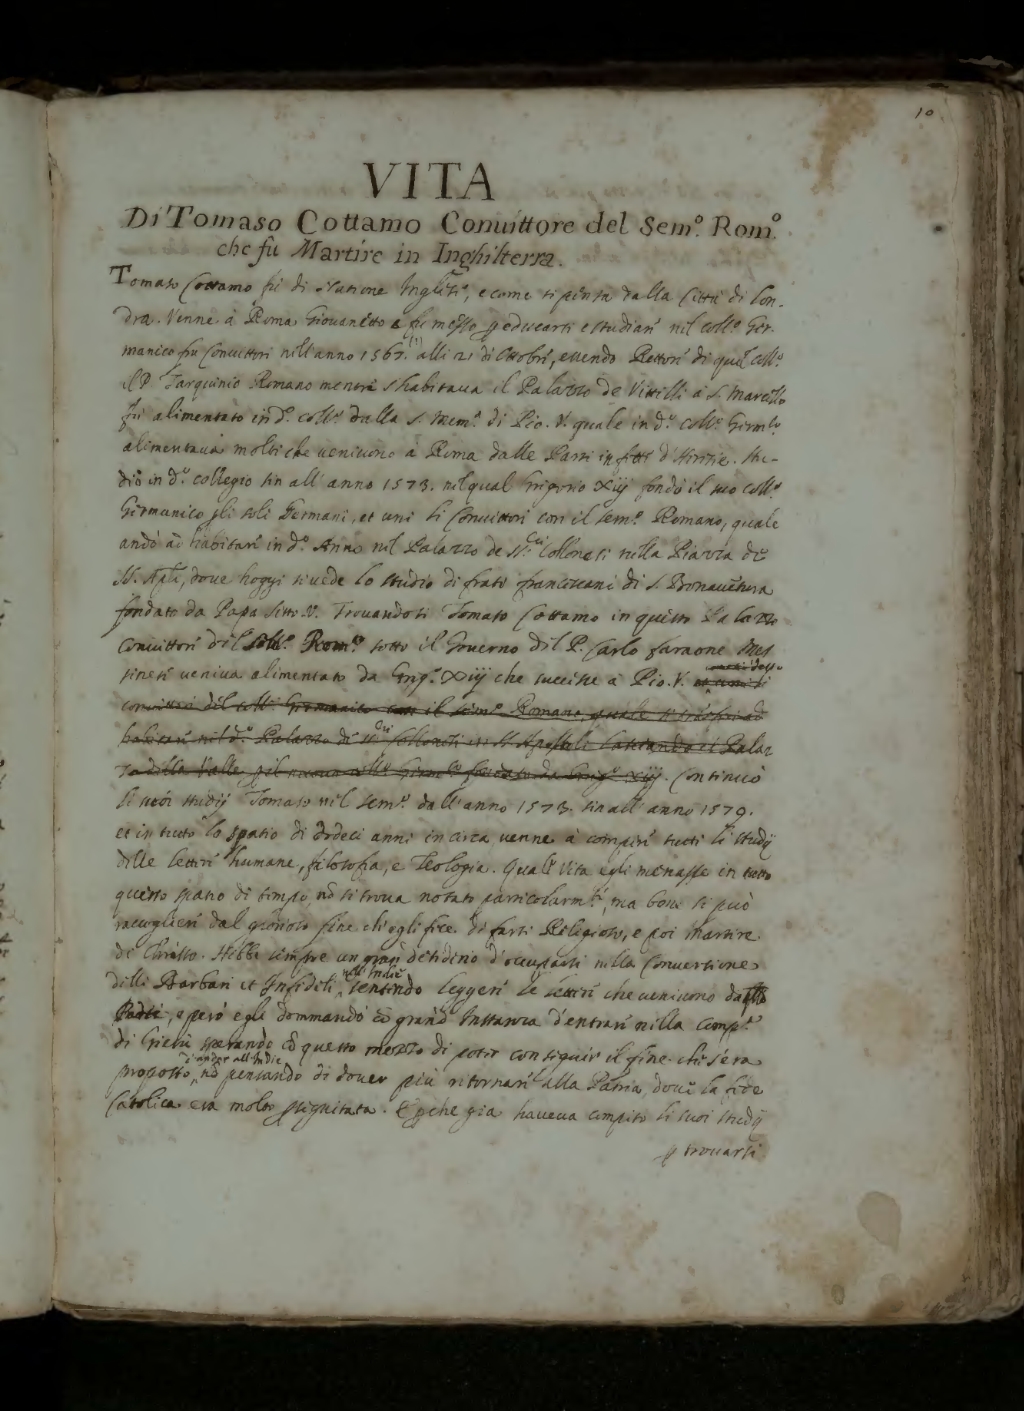 10
VITA
Di Tomaso Cottamo Conuittore del Sem.º Rom.º
che fù Martire in Inghilterra.
Tomaso Cottamo fù di Natione Inglese, e come si pensa dalla Città di Lon-
dra. Venne à Roma Giouanetto e fù messo p educarsi e studiari nel coll.º Ger-
manico frà Conuittori nell'anno 1567. alli 21 di Ottobre, essendo Rettore di quel coll.º
il P. Tarquinio Romano mentre s'habitaua il Palazzo de Vitelli à S. Marcello
fù alimentato in d.º coll.º dalla S. Mem.ª di Pio. V. quale in d.º coll.º Germ.co
alimentaua molti che veniuono à Roma dalle Parti infette d'Heresie. Stu-
diò in d.º collegio sin all'anno 1573. nel qual Gregorio Xiij fondò il suo coll.º
Germanico p li soli Germani, et unì li Conuittori con il sem.º Romano, quale
andò ad habitare in d.º Anno nel Palazzo de SS.ri Collonesi nella Piazza de
SS. Apli, doue hoggi si uede lo studio di frati franciscani di S. Bonauētura
fondato da Papa Sisto V. Trouandosi Tomaso Cottamo in questo Palazzo
Conuittore del Rom.º sotto il Gouerno del P. Carlo faraone Mes-
sinese veniua alimentato da Greg.º Xiij che successe à Pio. V.
conuittori del coll.º Germanico con il sem.º Romano, quale si trasferì ad
habitare nel d.º Palazzo di SS.ri Collonesi in SS Apostoli lasciando il Palaz-
zo della Valle p il nuouo coll.º Germ.co fondato da Greg.º Xiij. Continuò
li suoi studij Tomaso nel sem.º dall'anno 1573. sin all'anno 1579.
et in tutto lo spatio di dodeci anni in circa venne à compire tutti li studij
delle lettere humane, filosofia, e Teologia. Quale Vita egli menasse in tutto
questo spatio di tempo, nō si troua notato particolarm.te, ma bene si può
raccogliere dal glorioso fine ch'egli fece di farsi Religioso, e poi Martire
di Christo. Hebbe sempre un gran desiderio d'occuparsi nella Conuersione
delli Barbari et Infideli nell'Indie, sentendo leggere le lettere che veniuono
, e però egli dommandò cō grand'Instanza d'entrare nella Comp.ª
di Giesù sperando cō questo mezzo di poter conseguir il fine che s'era
proposto d'andar all'Indie, nō pensando di douer più ritornare alla Patria, doue la fede
Catolica era molto pseguitata. E pche già haueua compito li suoi studij
p trouarsi